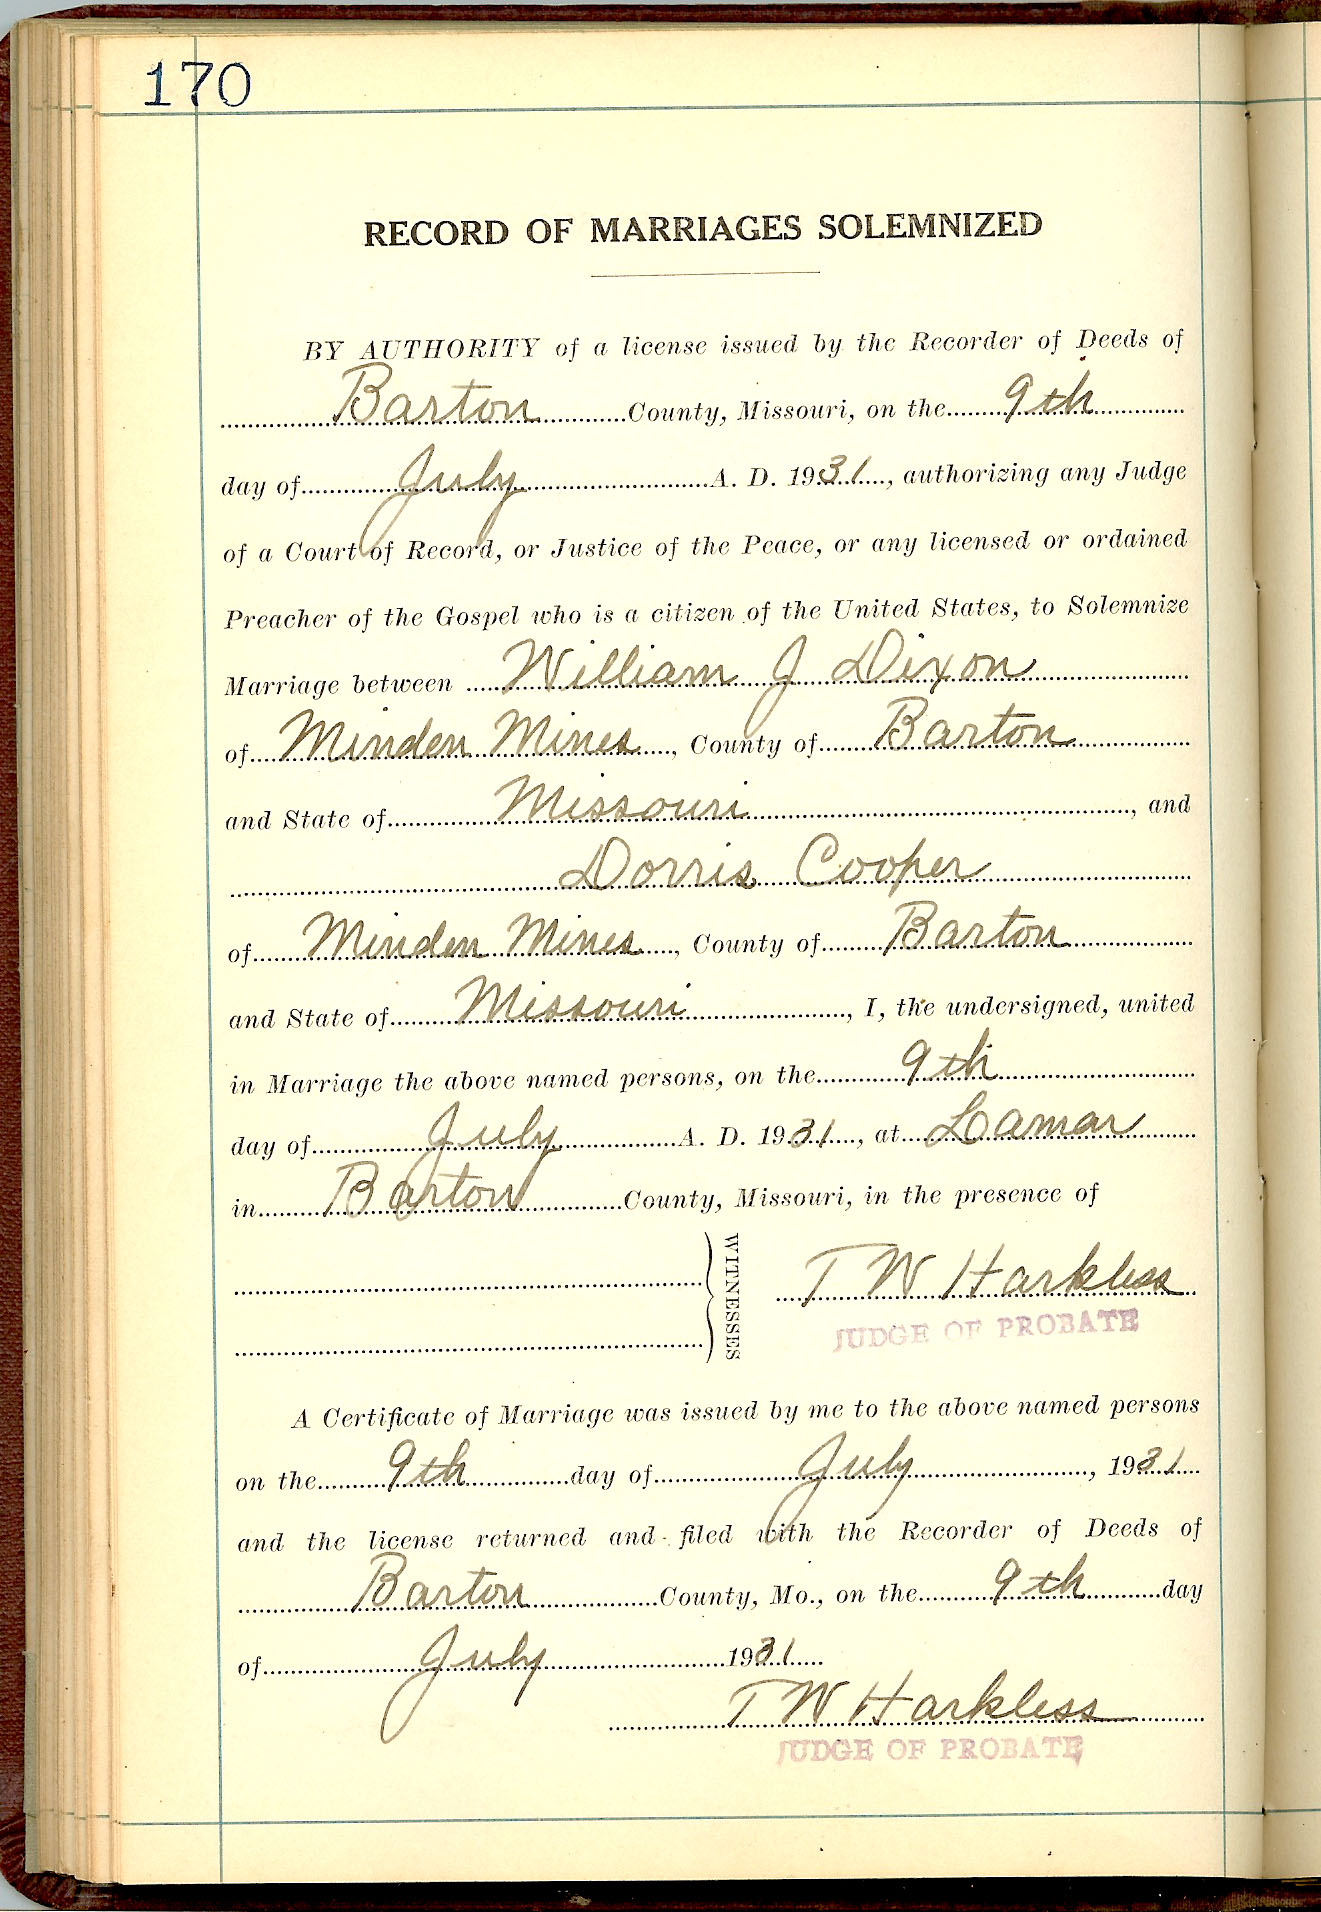 170
RECORD OF MARRIAGES SOLEMNIZED
BY AUTHORITY of a license issued by the Recorder of Deeds of
Barton County, Missouri, on the 9th
day of July A. D. 1931, authorizing any Judge
of a Court of Record, or Justice of the Peace, or any licensed or ordained
Preacher of the Gospel who is a citizen of the United States, to Solemnize
Marriage between William J Dixon
of Minden Mines, County of Barton
and State of Missouri, and
Dorris Cooper
of Minden Mines, County of Barton
and State of Missouri, I, the undersigned, united
in Marriage the above named persons, on the 9th
day of July A. D. 1931, at Lamar
in Barton County, Missouri, in the presence of
WITNESSES
T W Harkless
JUDGE OF PROBATE
A Certificate of Marriage was issued by me to the above named persons
on the 9th day of July, 1931
and the license returned and filed with the Recorder of Deeds of
Barton County, Mo., on the 9th day
of July 1931
T W Harkless
JUDGE OF PROBATE